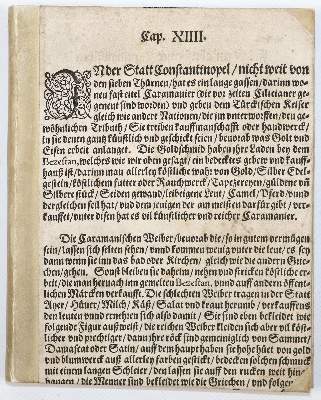 Cap. XIIII.
IN der Statt Constantinopel / nicht weit von
den sieben Thürnen / hat es ein lange gassen / darinn wo-
nen fast eitel Caramanier (die vor zeiten Cilicianer ge-
genent sind worden) vnd geben dem Türckischen Keiser
gleich wie andere Nationen / die jm vnterworffen / den ge-
wöhnlichen Tributh / Sie treiben kauffmanschafft oder handwerck /
in sie denen gantz künstlich vnd geschickt seien / beuorab was Golt vnd
Eisen erbeit anlangt. Die Goldschmid haben jhre Laden bey dem
Bezestan, welches wie wir oben gesagt / ein bedecktes gebew vnd kauff-
hauß ist / darinn man allerley köstliche wahr von Gold / Silber Edel-
gestein / köstlichem futter oder Rauchwerck / Tapezereyen / güldene vñ
Silbere stück / Seiden gewand / leibeigene Leut / Camel / Pferd / vnnd
dergleichen feil hat / vnd dem jenigen der am meisten darfür gibt / ver-
kauffet / vnter disen hat es vil künstlicher vnd reicher Caramanier.
Die Caramanischen Weiber / beuorab die / so in gutem vermügen
sein / lassen sich selten sehen / vnnd kommen wenig vnter die leut / es sey
dann wenn sie inn das bad oder Kirchen / gleich wie die andern Grie-
chen / gehen. Sonst bleiben sie daheim / nehen vnd stricken köstliche er-
beit / die man hernach inn gemelten Bezestan, vnnd auff andern öffent-
lichen Märckten verkaufft. Die schlechten Weiber tragen in der Statt
Ayer / Hüner / Milch / Käß / Salat vnd kraut herumb / verkauffens
den leuten vnnd ernehren sich also damit / Sie sind eben bekleidet wie
folgende Figur außweist / die reichen Weiber kleiden sich aber vil köst-
licher vnd prechtiger / dann jhre röck sind gemeiniglich von Sammet /
Damascat oder Satin / auff dem haupt haben sie hohe hüet von gold
vnd blumwerck auß allerley farben gestickt / bedecken solchen schmuck
mit einem langen Schleier / den lassen sie auff den rucken weit hin-
hangen / die Menner sind bekleidet wie die Griechen / vnd folgen